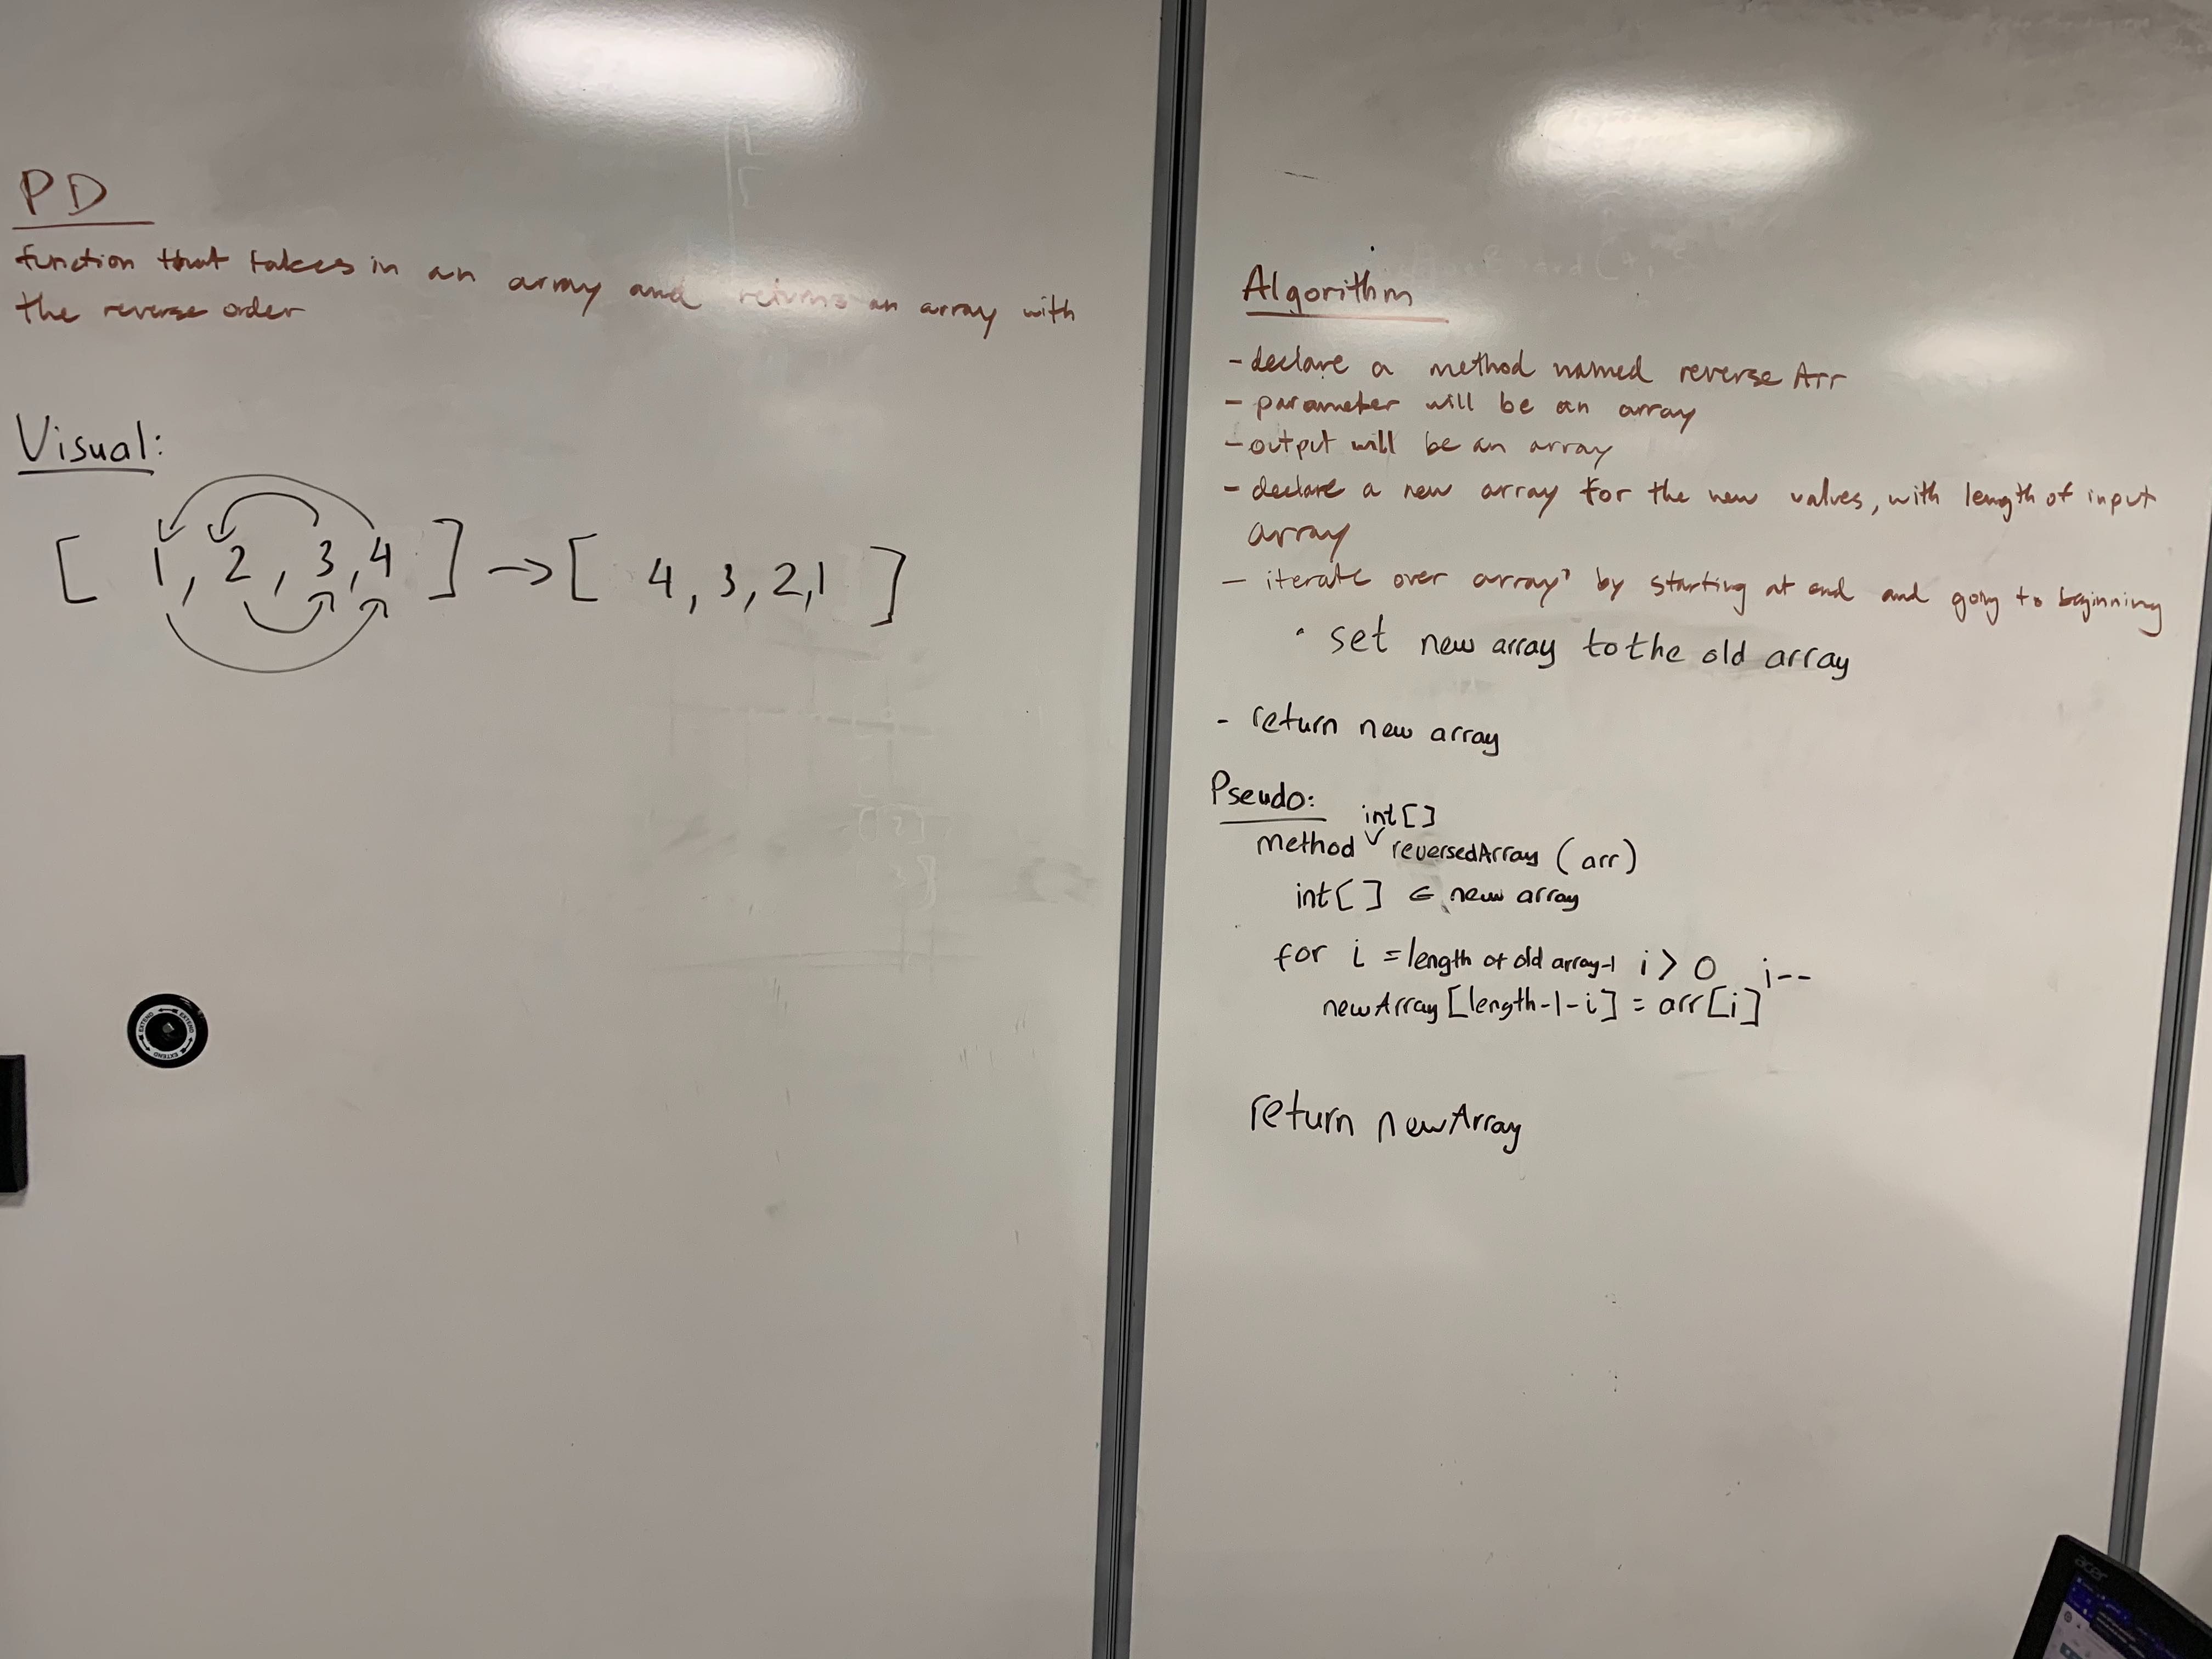 PD
function that takes in an array and returns an array with
the reverse order
Visual:
[ 1, 2, 3, 4 ] → [ 4, 3, 2, 1 ]
EXTEND EXTEND EXTEND
Algorithm
- declare a method named reverse Arr
- parameter will be an array
- output will be an array
- declare a new array for the new values, with length of input
array
- iterate over array by starting at end and going to beginning
• set new array to the old array
- return new array
Pseudo:
int[]
method reversedArray (arr)
int[] ← new array
for i = length of old array-1 i > 0 i--
newArray[length-1-i] = arr[i]
return newArray
acer